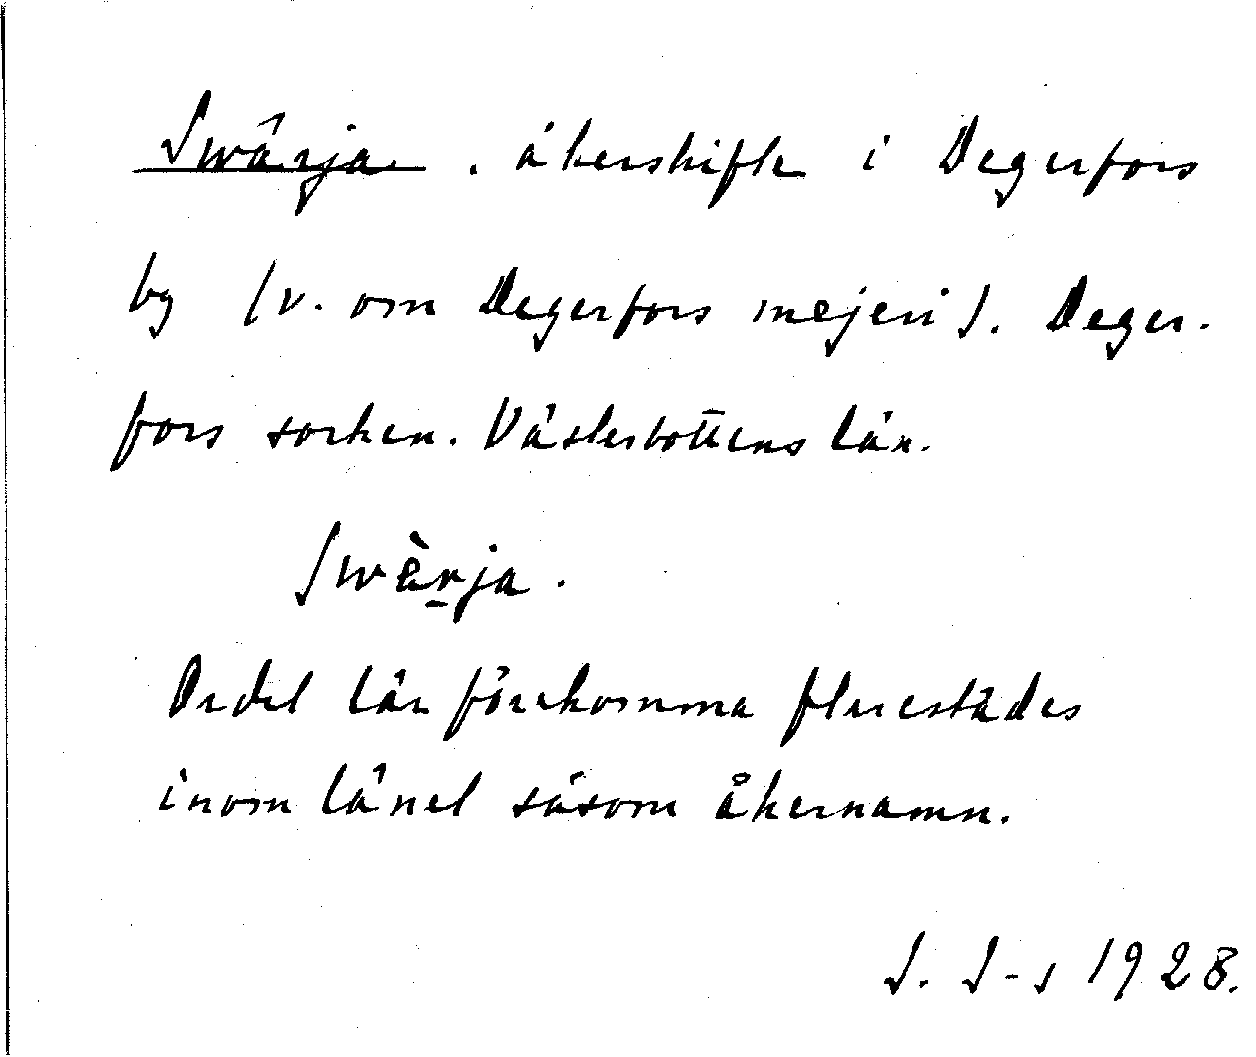 Swärja. åkerskifte i Degerfors
by (v. om Degerfors mejeri). Deger-
fors socken. Västerbottens län.
Swèrja.
Ordet lär förekomma flerestädes
inom länet såsom åkernamn.
J. J-s 1928.